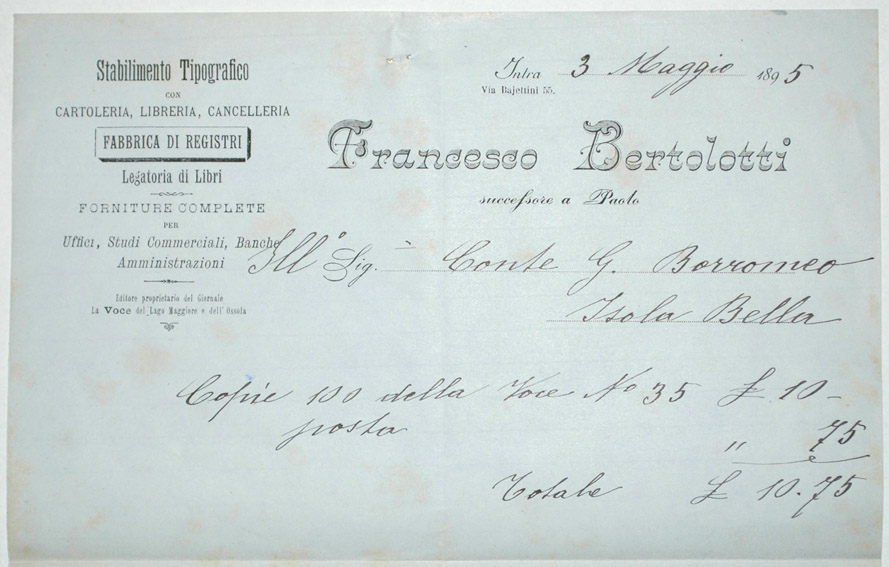 Stabilimento Tipografico
CON
CARTOLERIA, LIBRERIA, CANCELLERIA
FABBRICA DI REGISTRI
Legatoria di Libri
FORNITURE COMPLETE
PER
Uffici, Studi Commerciali, Banche
Amministrazioni
Editore proprietario del Giornale
La Voce del Lago Maggiore e dell'Ossola
Intra 3 Maggio 1895
Via Bajettini 55.
Francesco Bertolotti
successore a Paolo
Ill.o Sig. Conte G. Borromeo
Isola Bella
Copie 100 della Voce No 35 £ 10 -
posta " 75
Totale £ 10.75